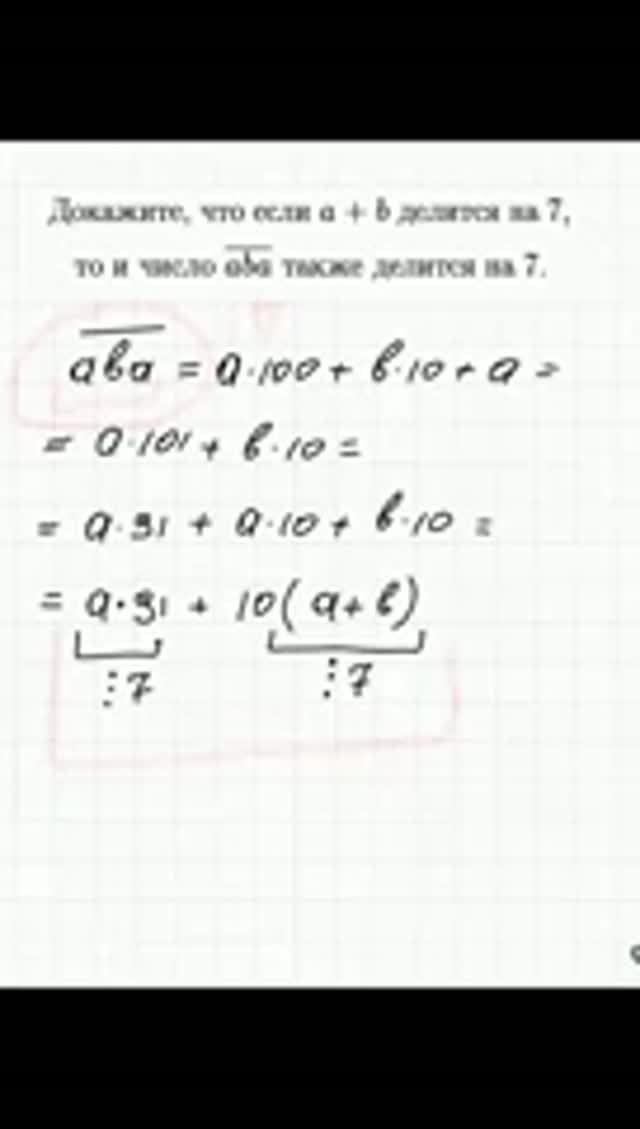 Докажите, что если a + b делится на 7,
то и число \overline{aba} также делится на 7.
\overline{aba} = a·100 + b·10 + a =
= a·101 + b·10 =
= a·91 + a·10 + b·10 =
= a·91 + 10(a+b)
⋮7 ⋮7